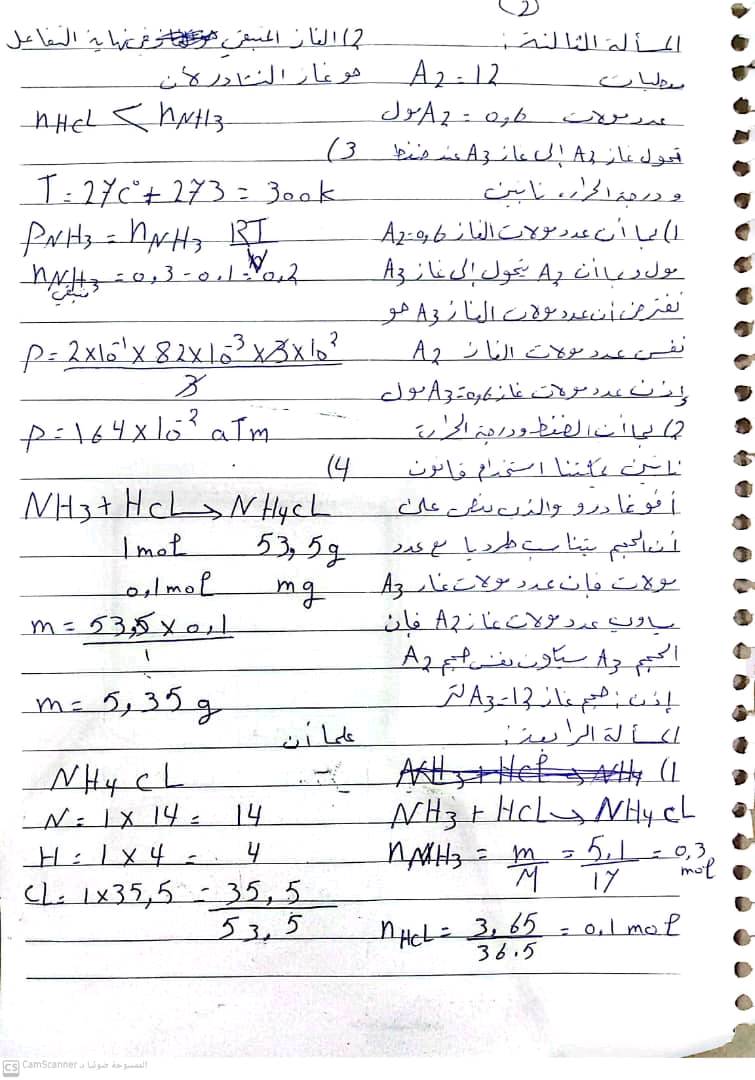 (2)
المسألة الثالثة:
معطيات A2=12
عدد مولات A2=0,6 مول
تحول غاز A2 إلى غاز A3 عند ضغط
و درجة الحرارة ثابتين
1) بما أن عدد مولات الغاز A2=0,6
مول وبما أن A2 يتحول إلى غاز A3
نفترض أن عدد مولات الغاز A3 هو
نفس عدد مولات الغاز A2
إذن عدد مولات غاز A3=0,6 مول
2) بما أن الضغط ودرجة الحرارة
ثابتين يمكننا استخدام قانون
أفوغادرو والذي ينص على
أن الحجم يتناسب طرديا مع عدد
مولات فإن عدد مولات غاز A3
يساوي عدد مولات غاز A2 فإن
الحجم A3 سيكون نفس حجم A2
إذن: حجم غاز A3=12 لتر
المسألة الرابعة:
1)
NH3 + HCL → NH4CL
nNH3 = m/M = 5,1/17 = 0,3 mol
nHCL = 3,65/36.5 = 0,1 mol
2) الغاز المتبقي في نهاية التفاعل
هو غاز النشادر لأن
nHCL < nNH3
3)
T = 27C° + 273 = 300k
PNH3 = nNH3 RT/V
nNH3 متبقي = 0,3 - 0,1 = 0,2
P = 2x10⁻¹ x 82x10⁻³ x 3x10²/3
P = 164 x 10⁻² aTm
4)
NH3 + HCL → NH4CL
1mol 53,5g
0,1mol mg
m = 53,5 x 0,1/1
m = 5,35 g
علما أن
NH4CL
N = 1 x 14 = 14
H = 1 x 4 = 4
CL = 1x35,5 = 35,5
53,5
CS CamScanner الممسوحة ضوئيا بـ